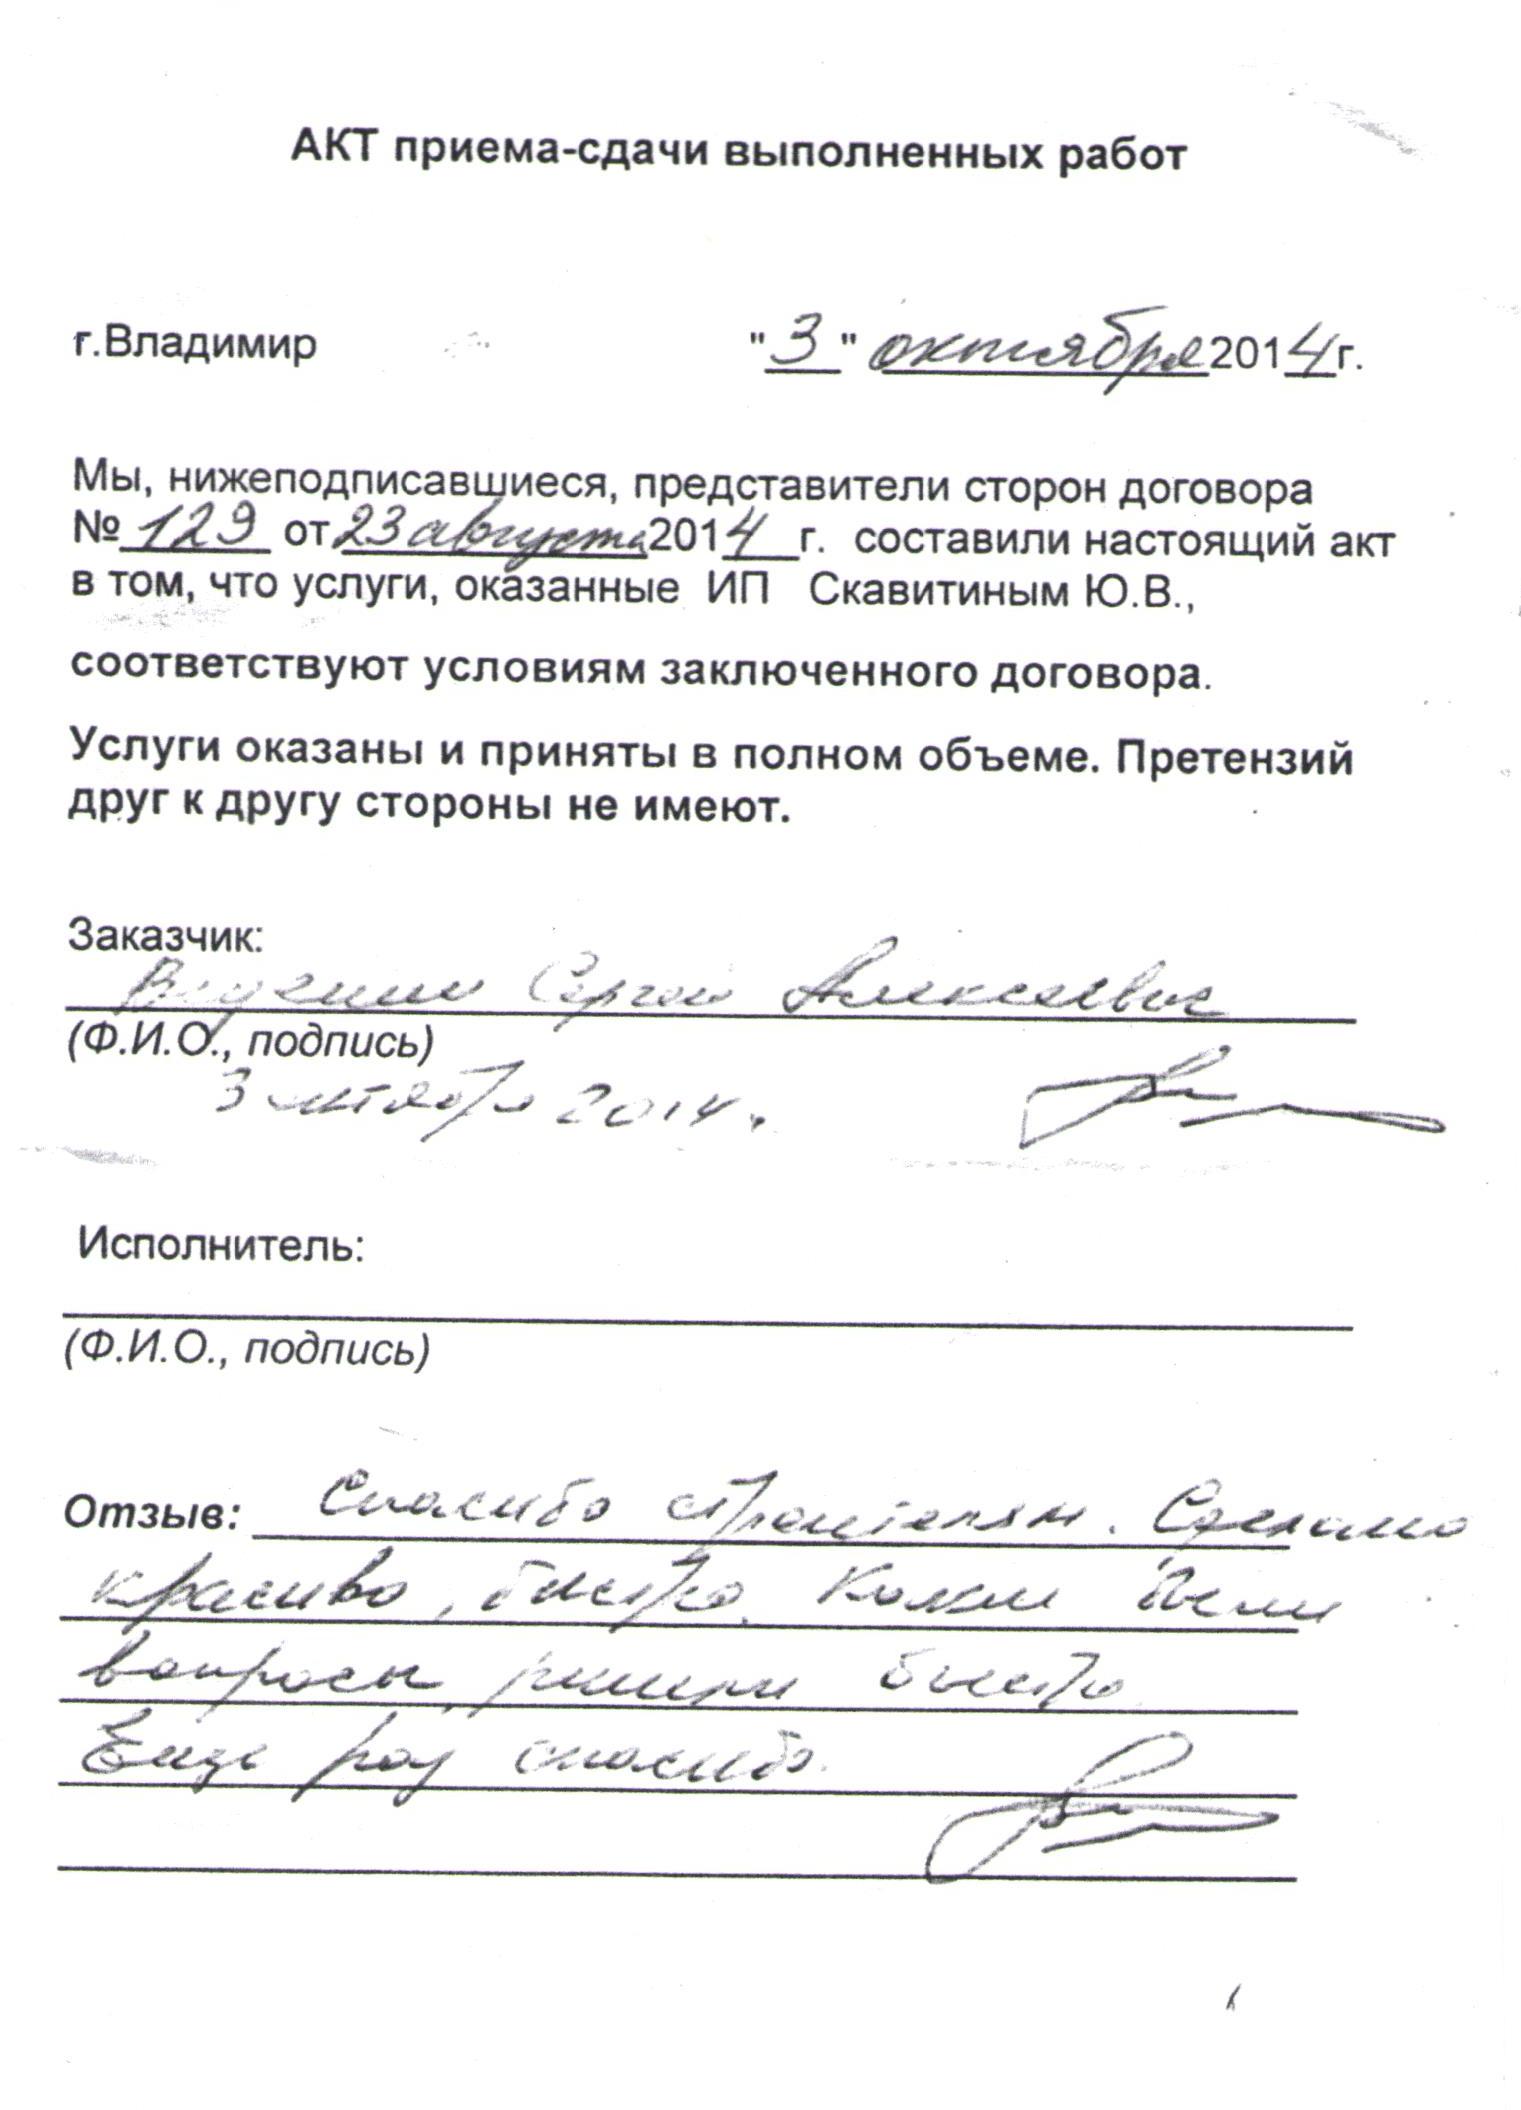 АКТ приема-сдачи выполненных работ
г.Владимир "3" октября 2014г.
Мы, нижеподписавшиеся, представители сторон договора
№ 129 от 23 августа 2014 г. составили настоящий акт
в том, что услуги, оказанные ИП Скавитиным Ю.В.,
соответствуют условиям заключенного договора.
Услуги оказаны и приняты в полном объеме. Претензий
друг к другу стороны не имеют.
Заказчик:
Сергей Алексеевич
(Ф.И.О., подпись)
3 октября 2014.
Исполнитель:
(Ф.И.О., подпись)
Отзыв: Спасибо строителям. Сделано
красиво, быстро. были
вопросы, решили быстро.
Еще раз спасибо.